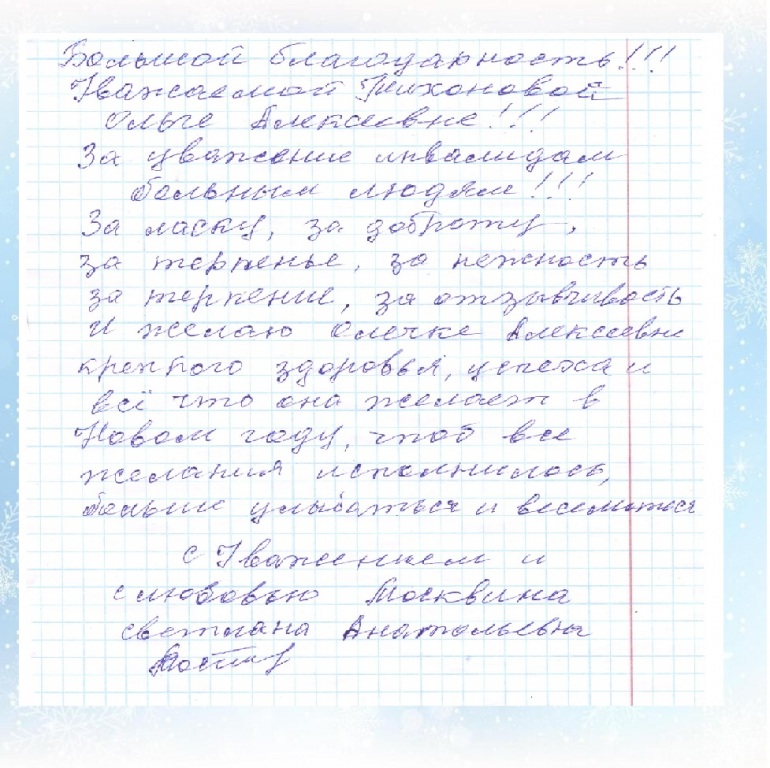 Большой благодарность!!!
Уважаемой Тихоновой
Ольге Алексеевне!!!
За уважение инвалидам
больным людям!!!
За ласку, за доброту,
за терпенье, за нежность
за терпение, за отзывчивость
И желаю Олечке Алексеевне
крепкого здоровья, успеха и
всё что она желает в
Новом году, чтоб все
желания исполнилось,
больше улыбаться и веселиться
с Уважением и
с любовью Москвина
светлана Анатольевна